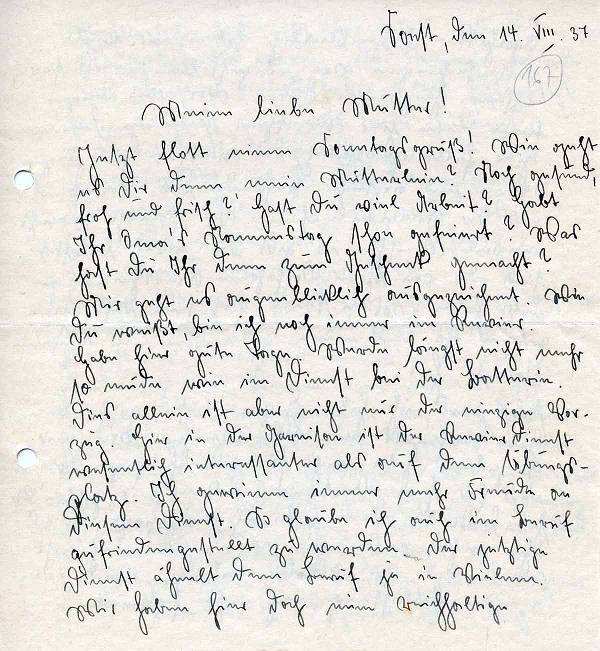 Forst, den 14. VIII. 37
167
Meine liebe Mutter!
Jetzt flott einen Sonntagsgruß! Wie geht
es Dir denn mein Mütterlein? Noch gesund,
froh und frisch? Hast Du viel Arbeit? Habt
Ihr Oma's Namenstag schon gefeiert? Was
hast Du Ihr denn zum Geschenk gemacht?
Mir geht es augenblicklich ausgezeichnet. Wie
Du weißt, bin ich noch immer im Revier.
Habe hier gute Tage. Werde längst nicht mehr
so müde wie im Dienst bei der Batterie.
Dies allein ist aber nicht nur der einzige Vor-
zug. Hier in der Garnison ist der Revierdienst
wesentlich interessanter als auf dem Übungs-
platz. Ich gewinne immer mehr Freude an
diesem Dienst. So glaube ich auch im Beruf
zufriedengestellt zu werden. Der jetzige
Dienst ähnelt dem Beruf ja in Vielem.
Wir haben hier doch eine reichhaltige